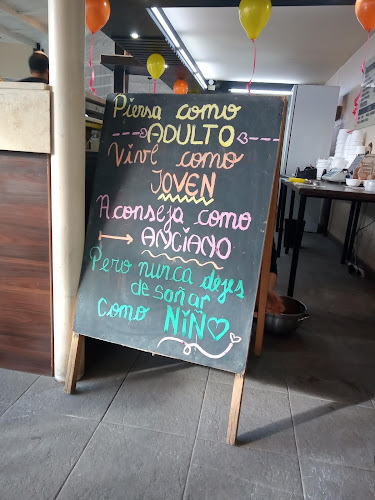 Piensa como
ADULTO
Vive como
JOVEN
Aconseja como
ANCIANO
Pero nunca dejes
de soñar
Como NIÑO